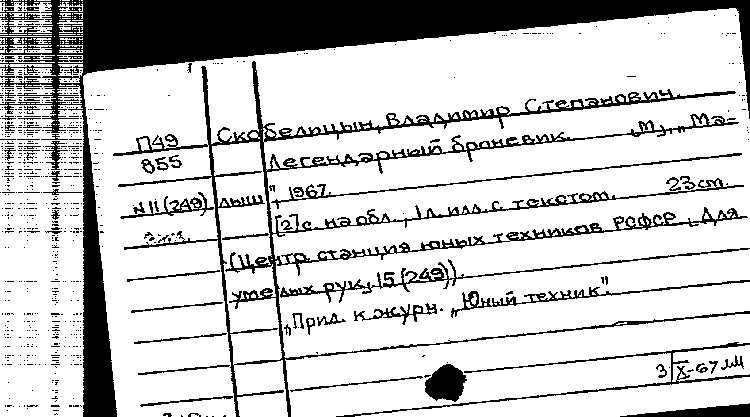 П49 Скобелицын, Владимир Степанович.
855 Легендарный броневик. М., „Ма=
№11(249) лыш", 1967.
2 экз. [2]с. на обл., 1 л. илл. с текстом. 23 cm.
(Центр станция юных техников РСФСР. Для
умелых рук, 15(249)).
„Прил. к журн. „Юный техник".
3 X-67